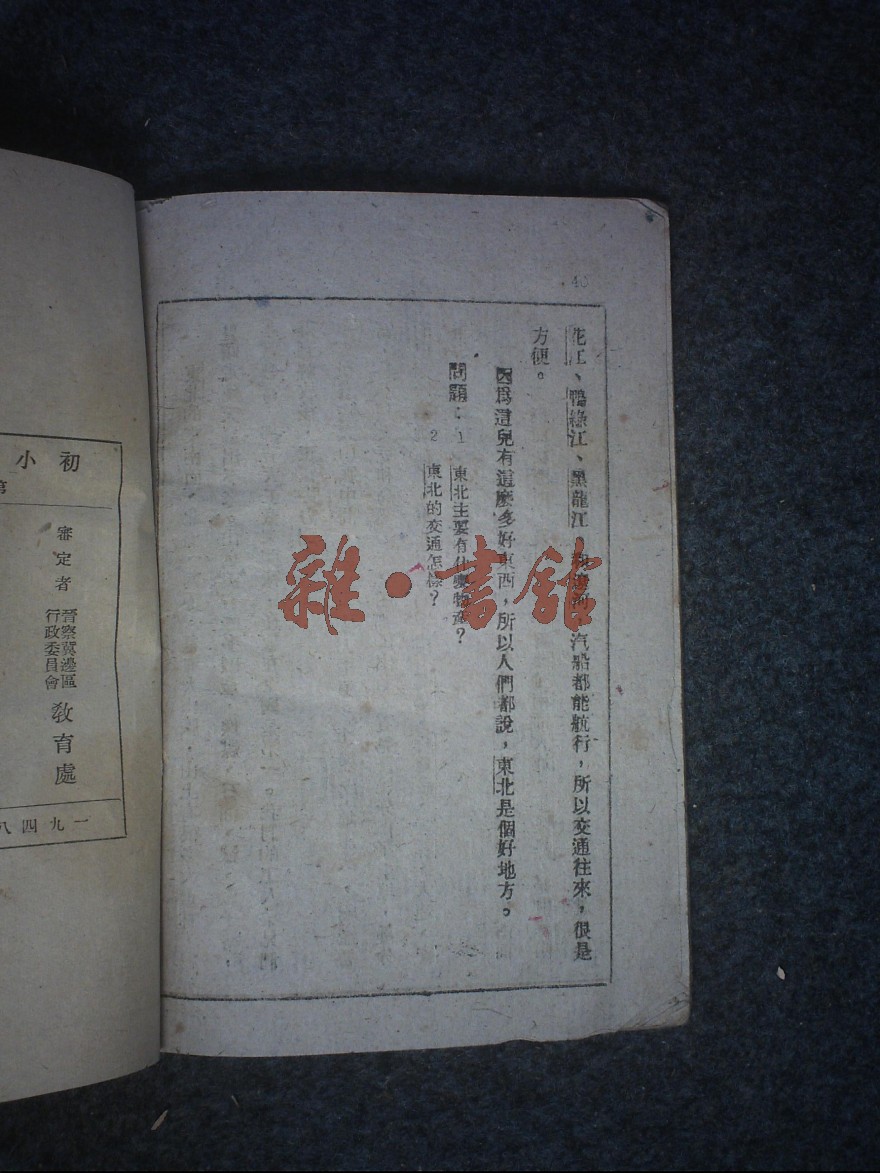 46
花江、鴨綠江、黑龍江 和遼河 汽船都能航行，所以交通往來，很是
方便。
因爲這兒有這麽多好東西，所以人們都說，東北是個好地方。
問題：1 東北主要有什麽物產？
2 東北的交通怎樣？
雜·書館
初小
第
審定者 晉察冀邊區行政委員會 教育處
一九四八